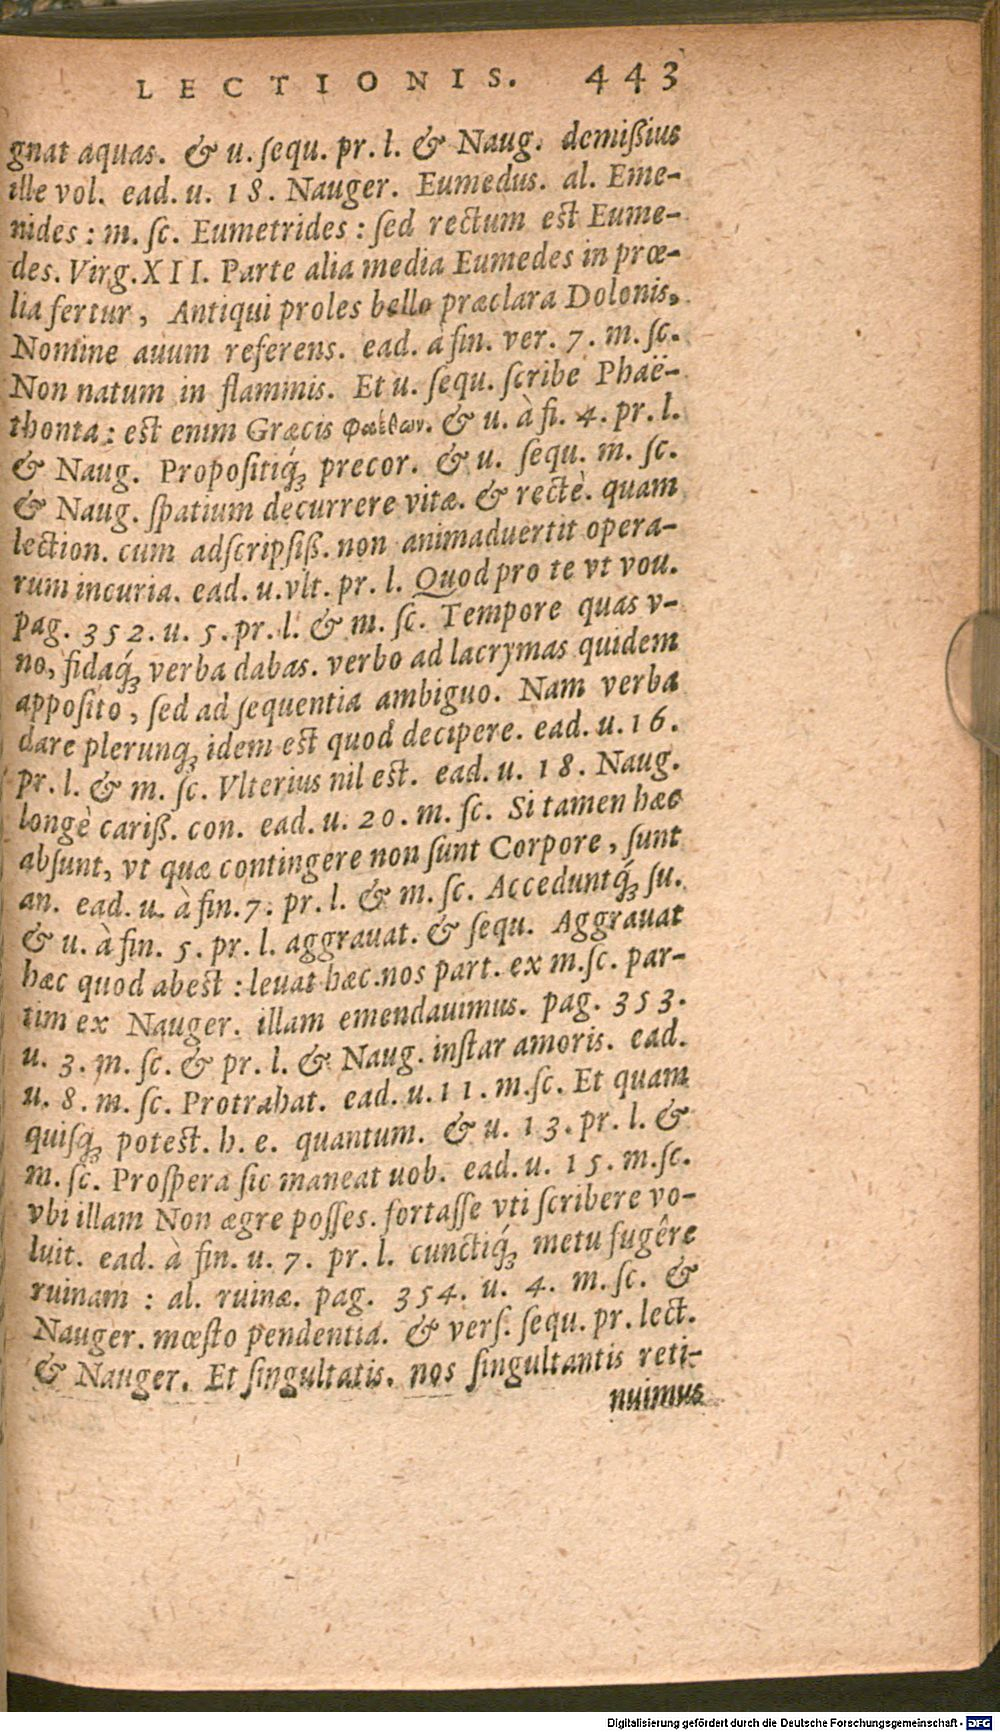 LECTIONIS. 443
gnat aquas. & u. ſequ. pr. l. & Naug. demißius
ille vol. ead. u. 18. Nauger. Eumedus. al. Eme-
nides : m. ſc. Eumetrides : ſed rectum est Eume-
des. Virg. XII. Parte alia media Eumedes in prœ-
lia fertur, Antiqui proles bello præclara Dolonis,
Nomine auum referens. ead. à fin. ver. 7. m. ſc.
Non natum in flammis. Et u. ſequ. ſcribe Phaë-
thonta : est enim Græcis φαέθων. & u. à fi. 4. pr. l.
& Naug. Propoſitiq́ꝫ precor. & u. ſequ. m. ſc.
& Naug. ſpatium decurrere vitæ. & rectè. quam
lection. cum adſcripſiß. non animaduertit opera-
rum incuria. ead. u. vlt. pr. l. Quod pro te vt vou.
pag. 352. u. 5. pr. l. & m. ſc. Tempore quas v-
no, fidaq́ꝫ verba dabas. verbo ad lacrymas quidem
appoſito, ſed ad ſequentia ambiguo. Nam verba
dare plerunqꝫ idem est quod decipere. ead. u. 16.
pr. l. & m. ſc. Vlterius nil est. ead. u. 18. Naug.
longè cariß. con. ead. u. 20. m. ſc. Si tamen hæc
abſunt, vt quæ contingere non ſunt Corpore, ſunt
an. ead. u. à fin. 7. pr. l. & m. ſc. Acceduntq́ꝫ ſu.
& u. à fin. 5. pr. l. aggrauat. & ſequ. Aggrauat
hæc quod abest : leuat hæc. nos part. ex m. ſc. par-
tim ex Nauger. illam emendauimus. pag. 353.
u. 3. m. ſc. & pr. l. & Naug. inſtar amoris. ead.
u. 8. m. ſc. Protrahat. ead. u. 11. m. ſc. Et quam
quiſqꝫ potest. h. e. quantum. & u. 13. pr. l. &
m. ſc. Proſpera ſic maneat uob. ead. u. 15. m. ſc.
vbi illam Non ægre poſſes. fortaſſe vti ſcribere vo-
luit. ead. à fin. u. 7. pr. l. cunctiq́ꝫ metu fugêre
ruinam : al. ruinæ. pag. 354. u. 4. m. ſc. &
Nauger. mœſto pendentia. & verſ. ſequ. pr. lect.
& Nauger. Et ſingultatis. nos ſingultantis reti-
nuimus
Digitalisierung gefördert durch die Deutsche Forschungsgemeinschaft - DFG